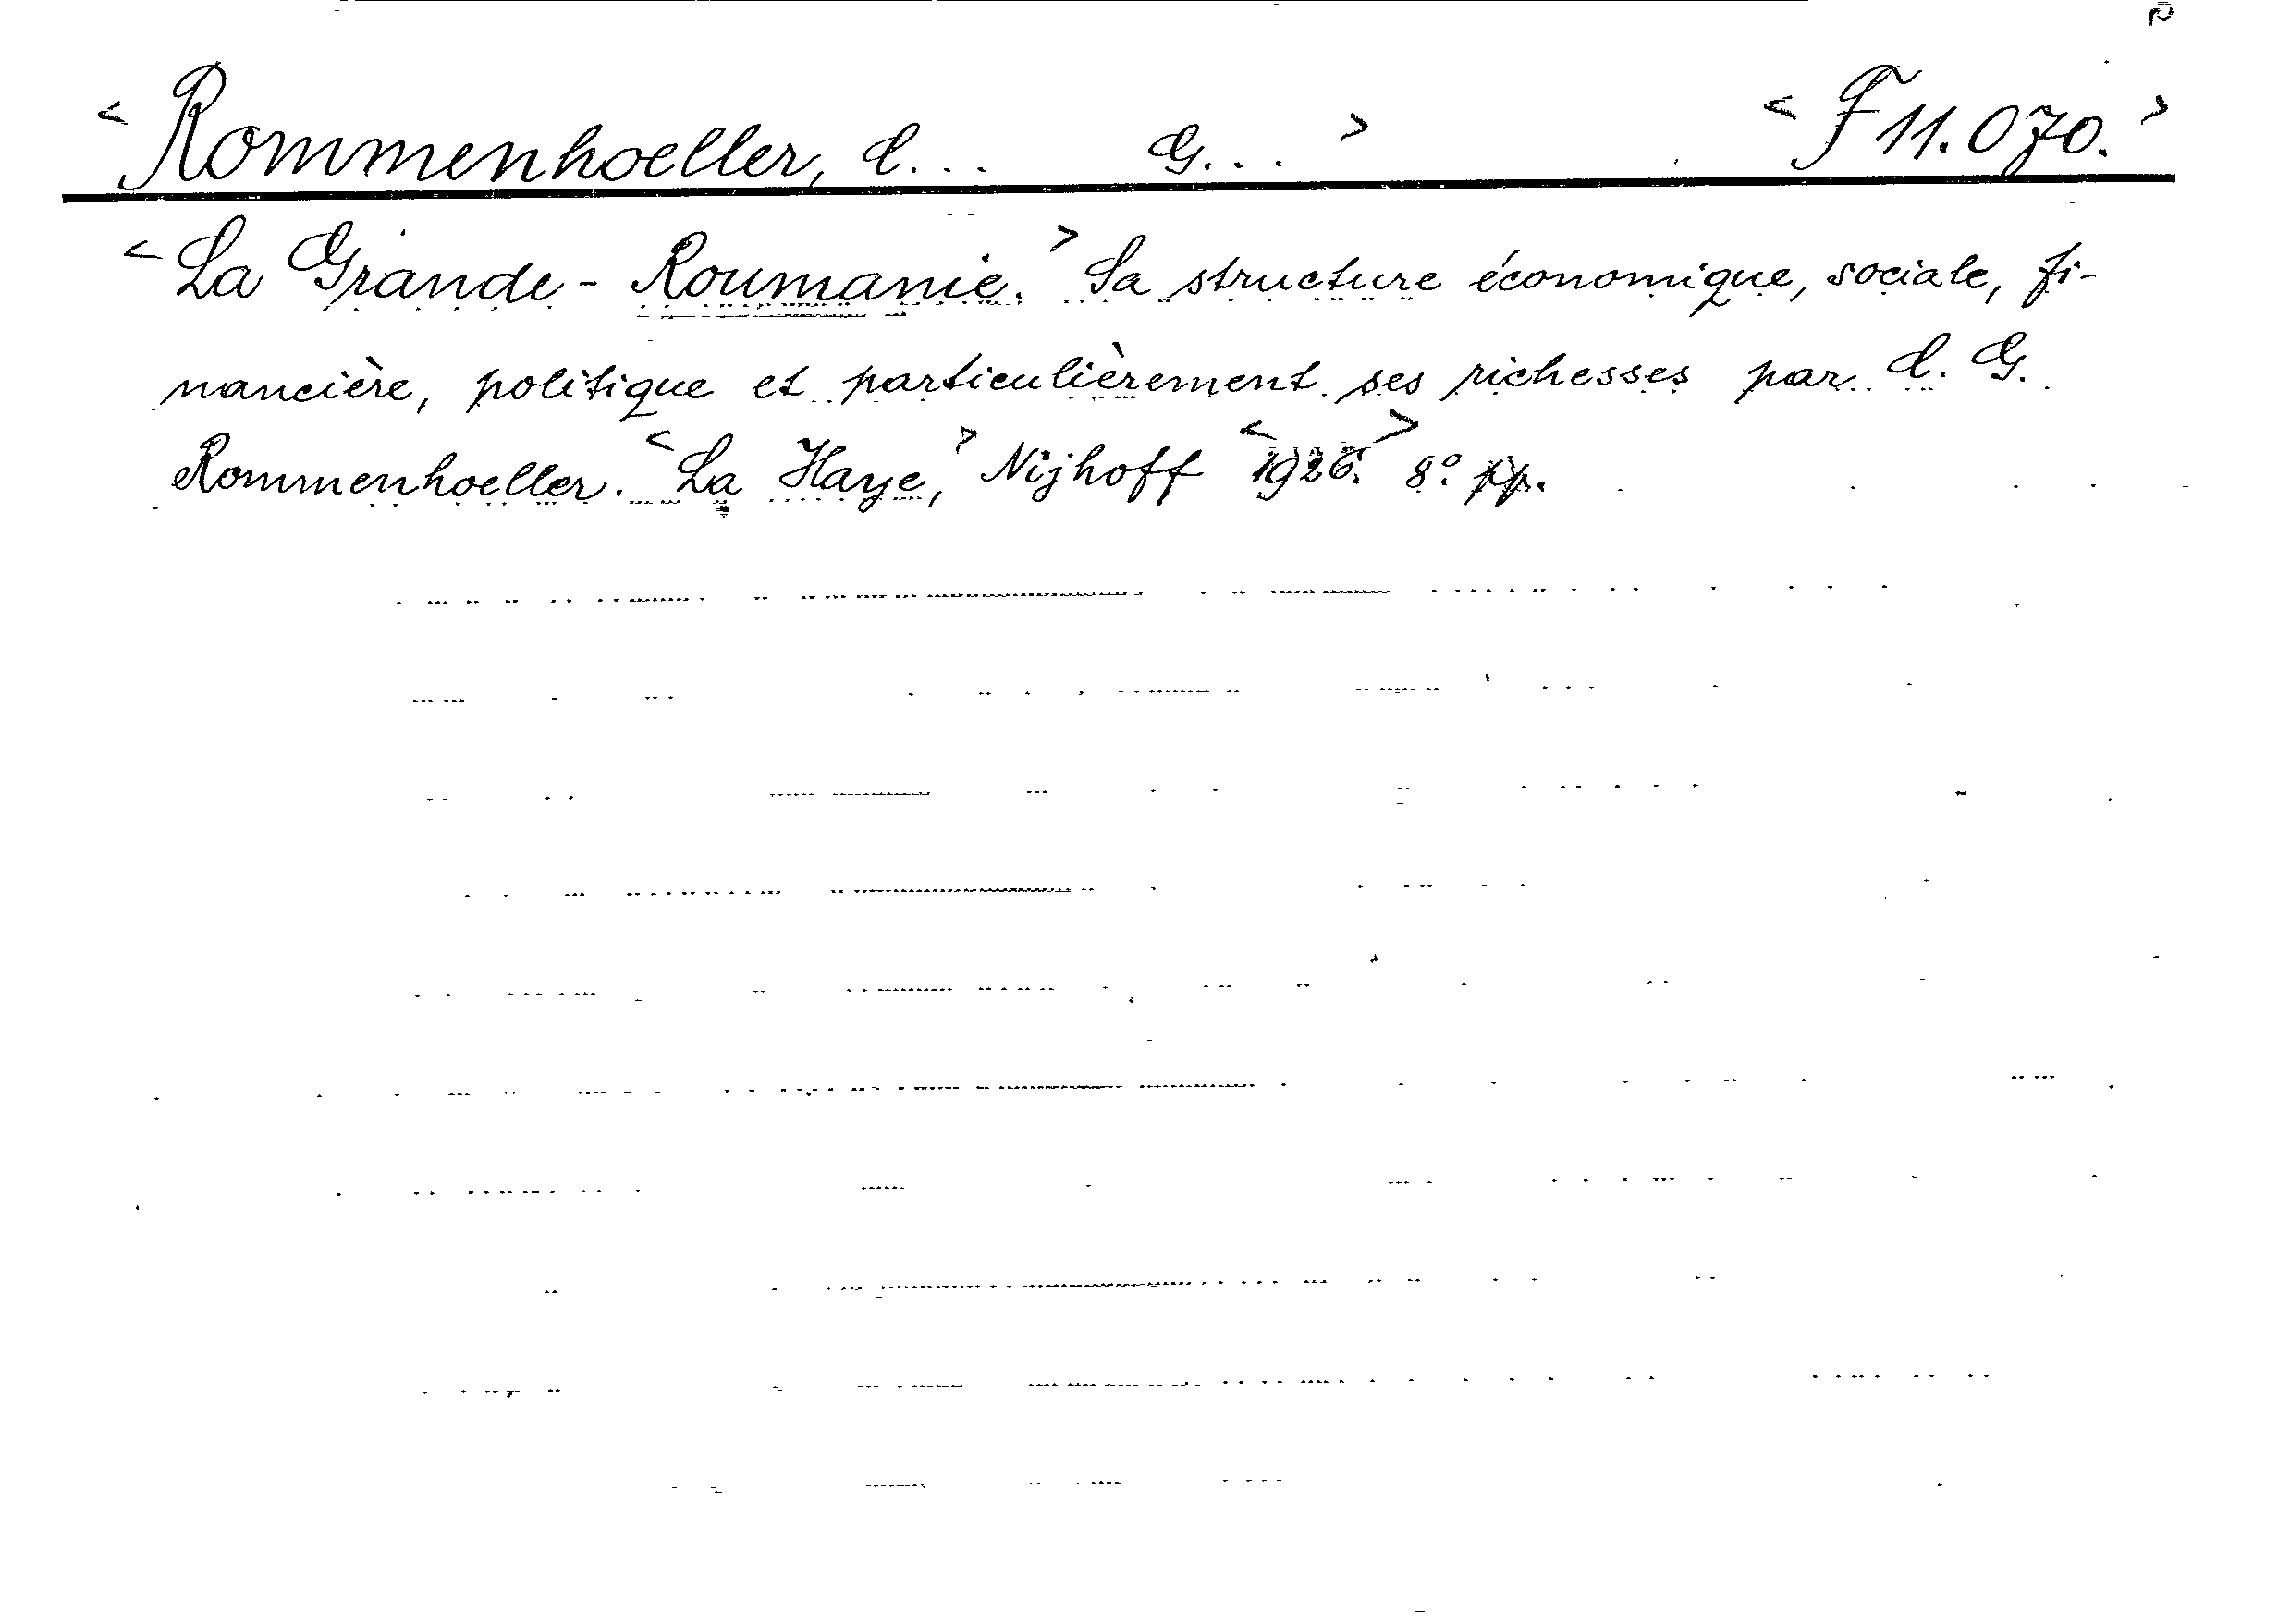 < Rommenhoeller, C... G... > < F 11.070. >
< La Grande-Roumanie. > Sa structure économique, sociale, fi-
nancière, politique et particulièrement ses richesses par C. G.
Rommenhoeller. < La Haye, > Nijhoff < 1926. > 8° pp.